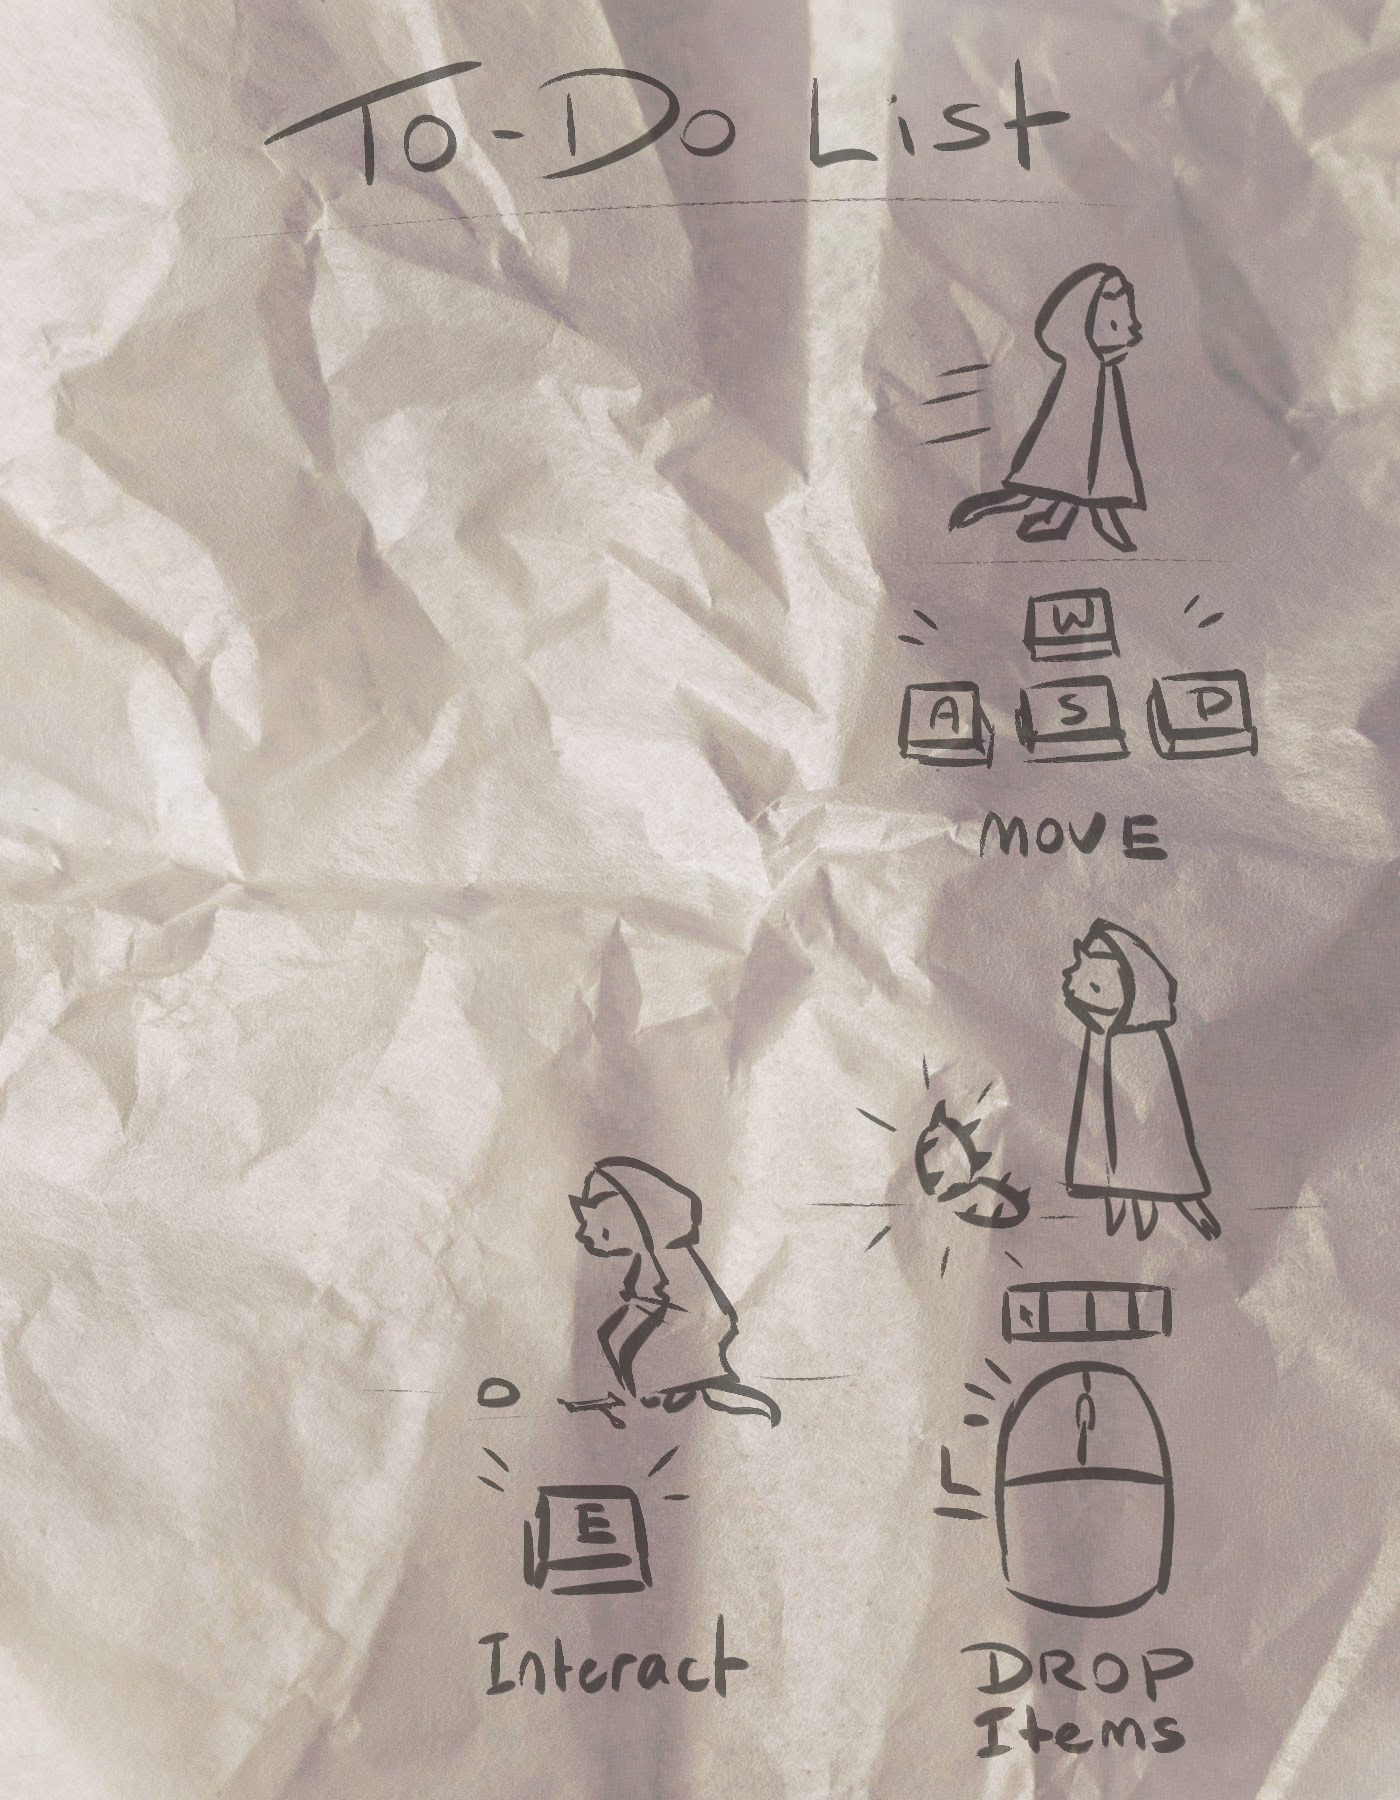 To-Do List
W
A S D
MOVE
E
Interact
L
DROP
Items